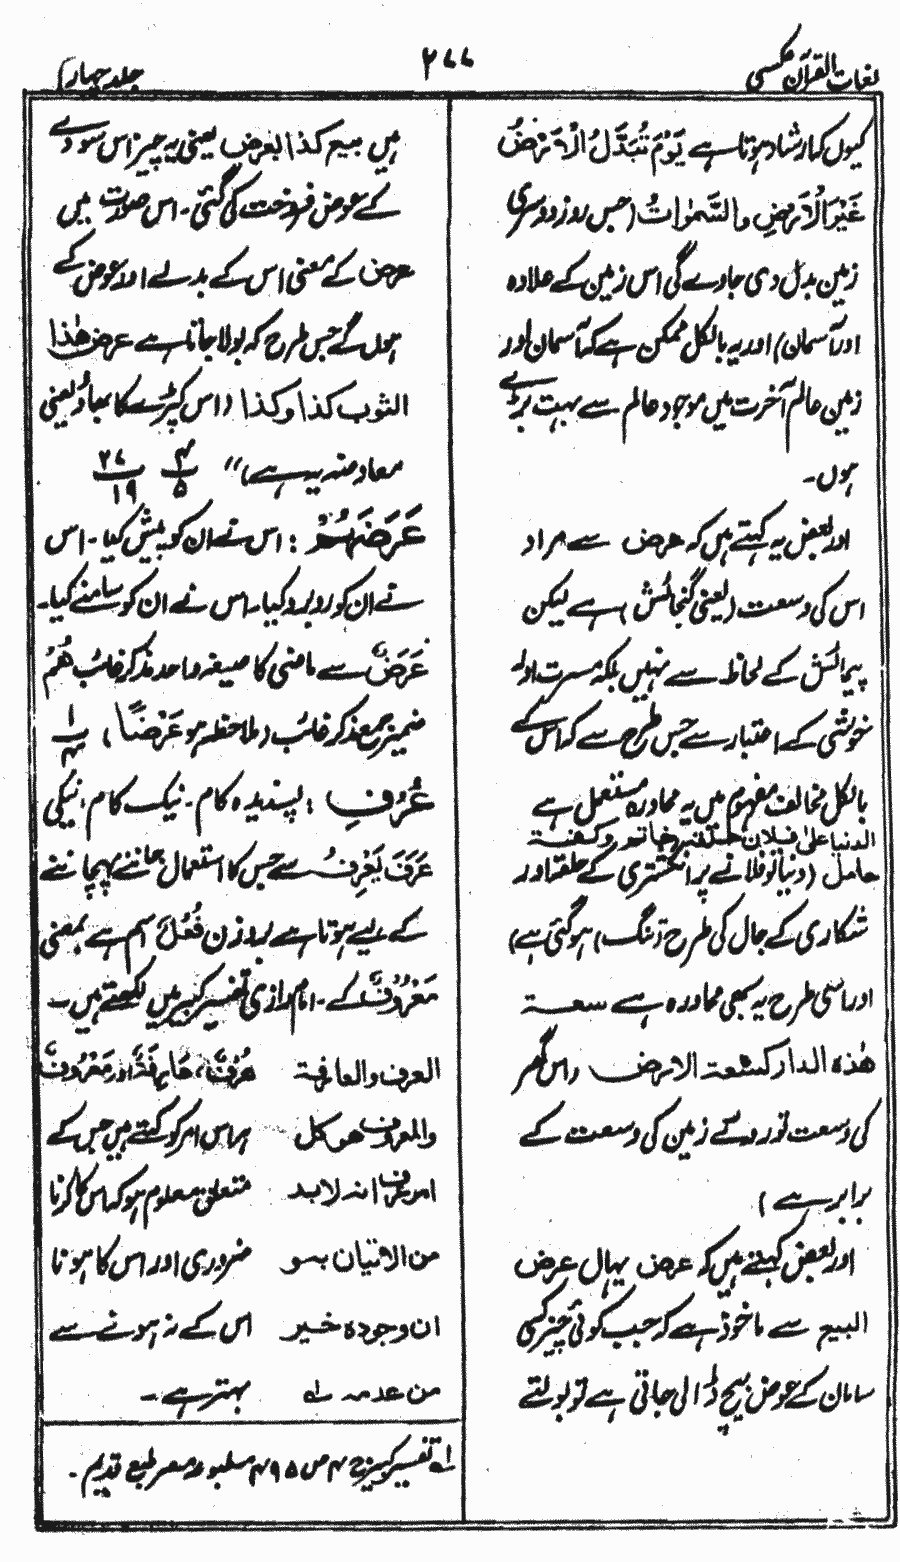 لغات القرآن عکسی
۲۷۷
جلد چہارم
کیوں کہ ارشاد ہوتا ہے یَوْمَ تُبَدَّلُ الْاَرْضُ
غَیْرَ الْاَرْضِ وَالسَّمٰوَاتُ (جس روز دوسری
زمین بدل دی جاوے گی اس زمین کے علاوہ
اور آسمان) اور یہ بالکل ممکن ہے کہ آسمان اور
زمین عالم آخرت میں موجود عالم سے بہت بڑے
ہوں۔
اور بعض یہ کہتے ہیں کہ عرض سے مراد
اس کی وسعت (یعنی گنجائش) ہے لیکن
پیمائش کے لحاظ سے نہیں بلکہ مسرت اور
خوشی کے اعتبار سے جس طرح سے کہ اس کے
بالکل مخالف مفہوم میں یہ محاورہ مستعمل ہے
الدنیا علی فلان حلقۃ خاتم وکفۃ
حامل (دنیا تو فلانے پر انگشتری کے حلقہ اور
شکاری کے جال کی طرح تنگ ہو گئی ہے)
اور اسی طرح یہ بھی محاورہ ہے سعۃ
ھٰذہ الدار کسعۃ الارض (اس گھر
کی وسعت تو روئے زمین کی وسعت کے
برابر ہے)
اور بعض کہتے ہیں کہ عرض یہاں عرض
البیع سے ماخوذ ہے کہ جب کوئی چیز کسی
سامان کے عوض بیچ ڈالی جاتی ہے تو بولتے
ہیں بیع کذا بعرض یعنی یہ چیز اس سودے
کے عوض فروخت کی گئی۔ اس صورت میں
عرض کے معنی اس کے بدلے اور عوض کے
ہوں گے جس طرح کہ بولا جاتا ہے عرض ھٰذا
الثوب کذا وکذا (اس کپڑے کا بھاؤ یعنی
معاوضہ یہ ہے)" ۴/۵ ۲۷/۱۹
عَرَضَہُمْ: اس نے ان کو پیش کیا۔ اس
نے ان کو روبرو کیا۔ اس نے ان کو سامنے کیا۔
عَرْضٌ سے ماضی کا صیغہ واحد مذکر غائب ھُمْ
ضمیر جمع مذکر غائب (ملاحظہ ہو عَرْضًا) ۱/۴
عُرْفِ: پسندیدہ کام۔ نیک کام، نیکی
عَرَفَ یَعْرِفُ سے جس کا استعمال جاننے پہچاننے
کے لیے ہوتا ہے بروزن فُعْلٌ اسم ہے بمعنی
مَعْرُوْفٌ کے۔ امام رازی تفسیر کبیر میں لکھتے ہیں۔
العرف والعارفۃ عُرْفٌ، عَارِفَۃٌ اور مَعْرُوْفٌ
والمعروف ھو کل ہر اس امر کو کہتے ہیں جس کے
امر عرف انہ لابد متعلق معلوم ہو کہ اس کا کرنا
من الاتیان بہ و ضروری اور اس کا ہونا
ان وجودہ خیر اس کے نہ ہونے سے
من عدمہ لہ بہتر ہے۔
لہ تفسیر کبیر ج ۴ ص ۴۹۵ مطبوعہ مصر طبع قدیم۔